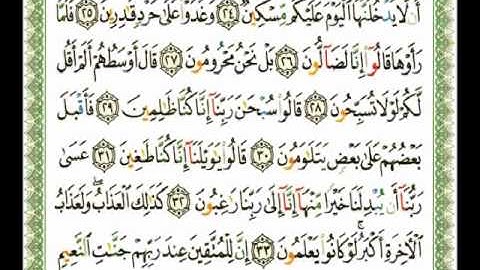 أَن لَّا يَدْخُلَنَّهَا الْيَوْمَ عَلَيْكُم مِّسْكِينٌ ﴿٢٤﴾ وَغَدَوْا عَلَىٰ حَرْدٍ قَادِرِينَ ﴿٢٥﴾ فَلَمَّا
رَأَوْهَا قَالُوا إِنَّا لَضَالُّونَ ﴿٢٦﴾ بَلْ نَحْنُ مَحْرُومُونَ ﴿٢٧﴾ قَالَ أَوْسَطُهُمْ أَلَمْ أَقُل
لَّكُمْ لَوْلَا تُسَبِّحُونَ ﴿٢٨﴾ قَالُوا سُبْحَانَ رَبِّنَا إِنَّا كُنَّا ظَالِمِينَ ﴿٢٩﴾ فَأَقْبَلَ
بَعْضُهُمْ عَلَىٰ بَعْضٍ يَتَلَاوَمُونَ ﴿٣٠﴾ قَالُوا يَا وَيْلَنَا إِنَّا كُنَّا طَاغِينَ ﴿٣١﴾ عَسَىٰ
رَبُّنَا أَن يُبْدِلَنَا خَيْرًا مِّنْهَا إِنَّا إِلَىٰ رَبِّنَا رَاغِبُونَ ﴿٣٢﴾ كَذَٰلِكَ الْعَذَابُ ۖ وَلَعَذَابُ
الْآخِرَةِ أَكْبَرُ ۚ لَوْ كَانُوا يَعْلَمُونَ ﴿٣٣﴾ إِنَّ لِلْمُتَّقِينَ عِندَ رَبِّهِمْ جَنَّاتِ النَّعِيمِ